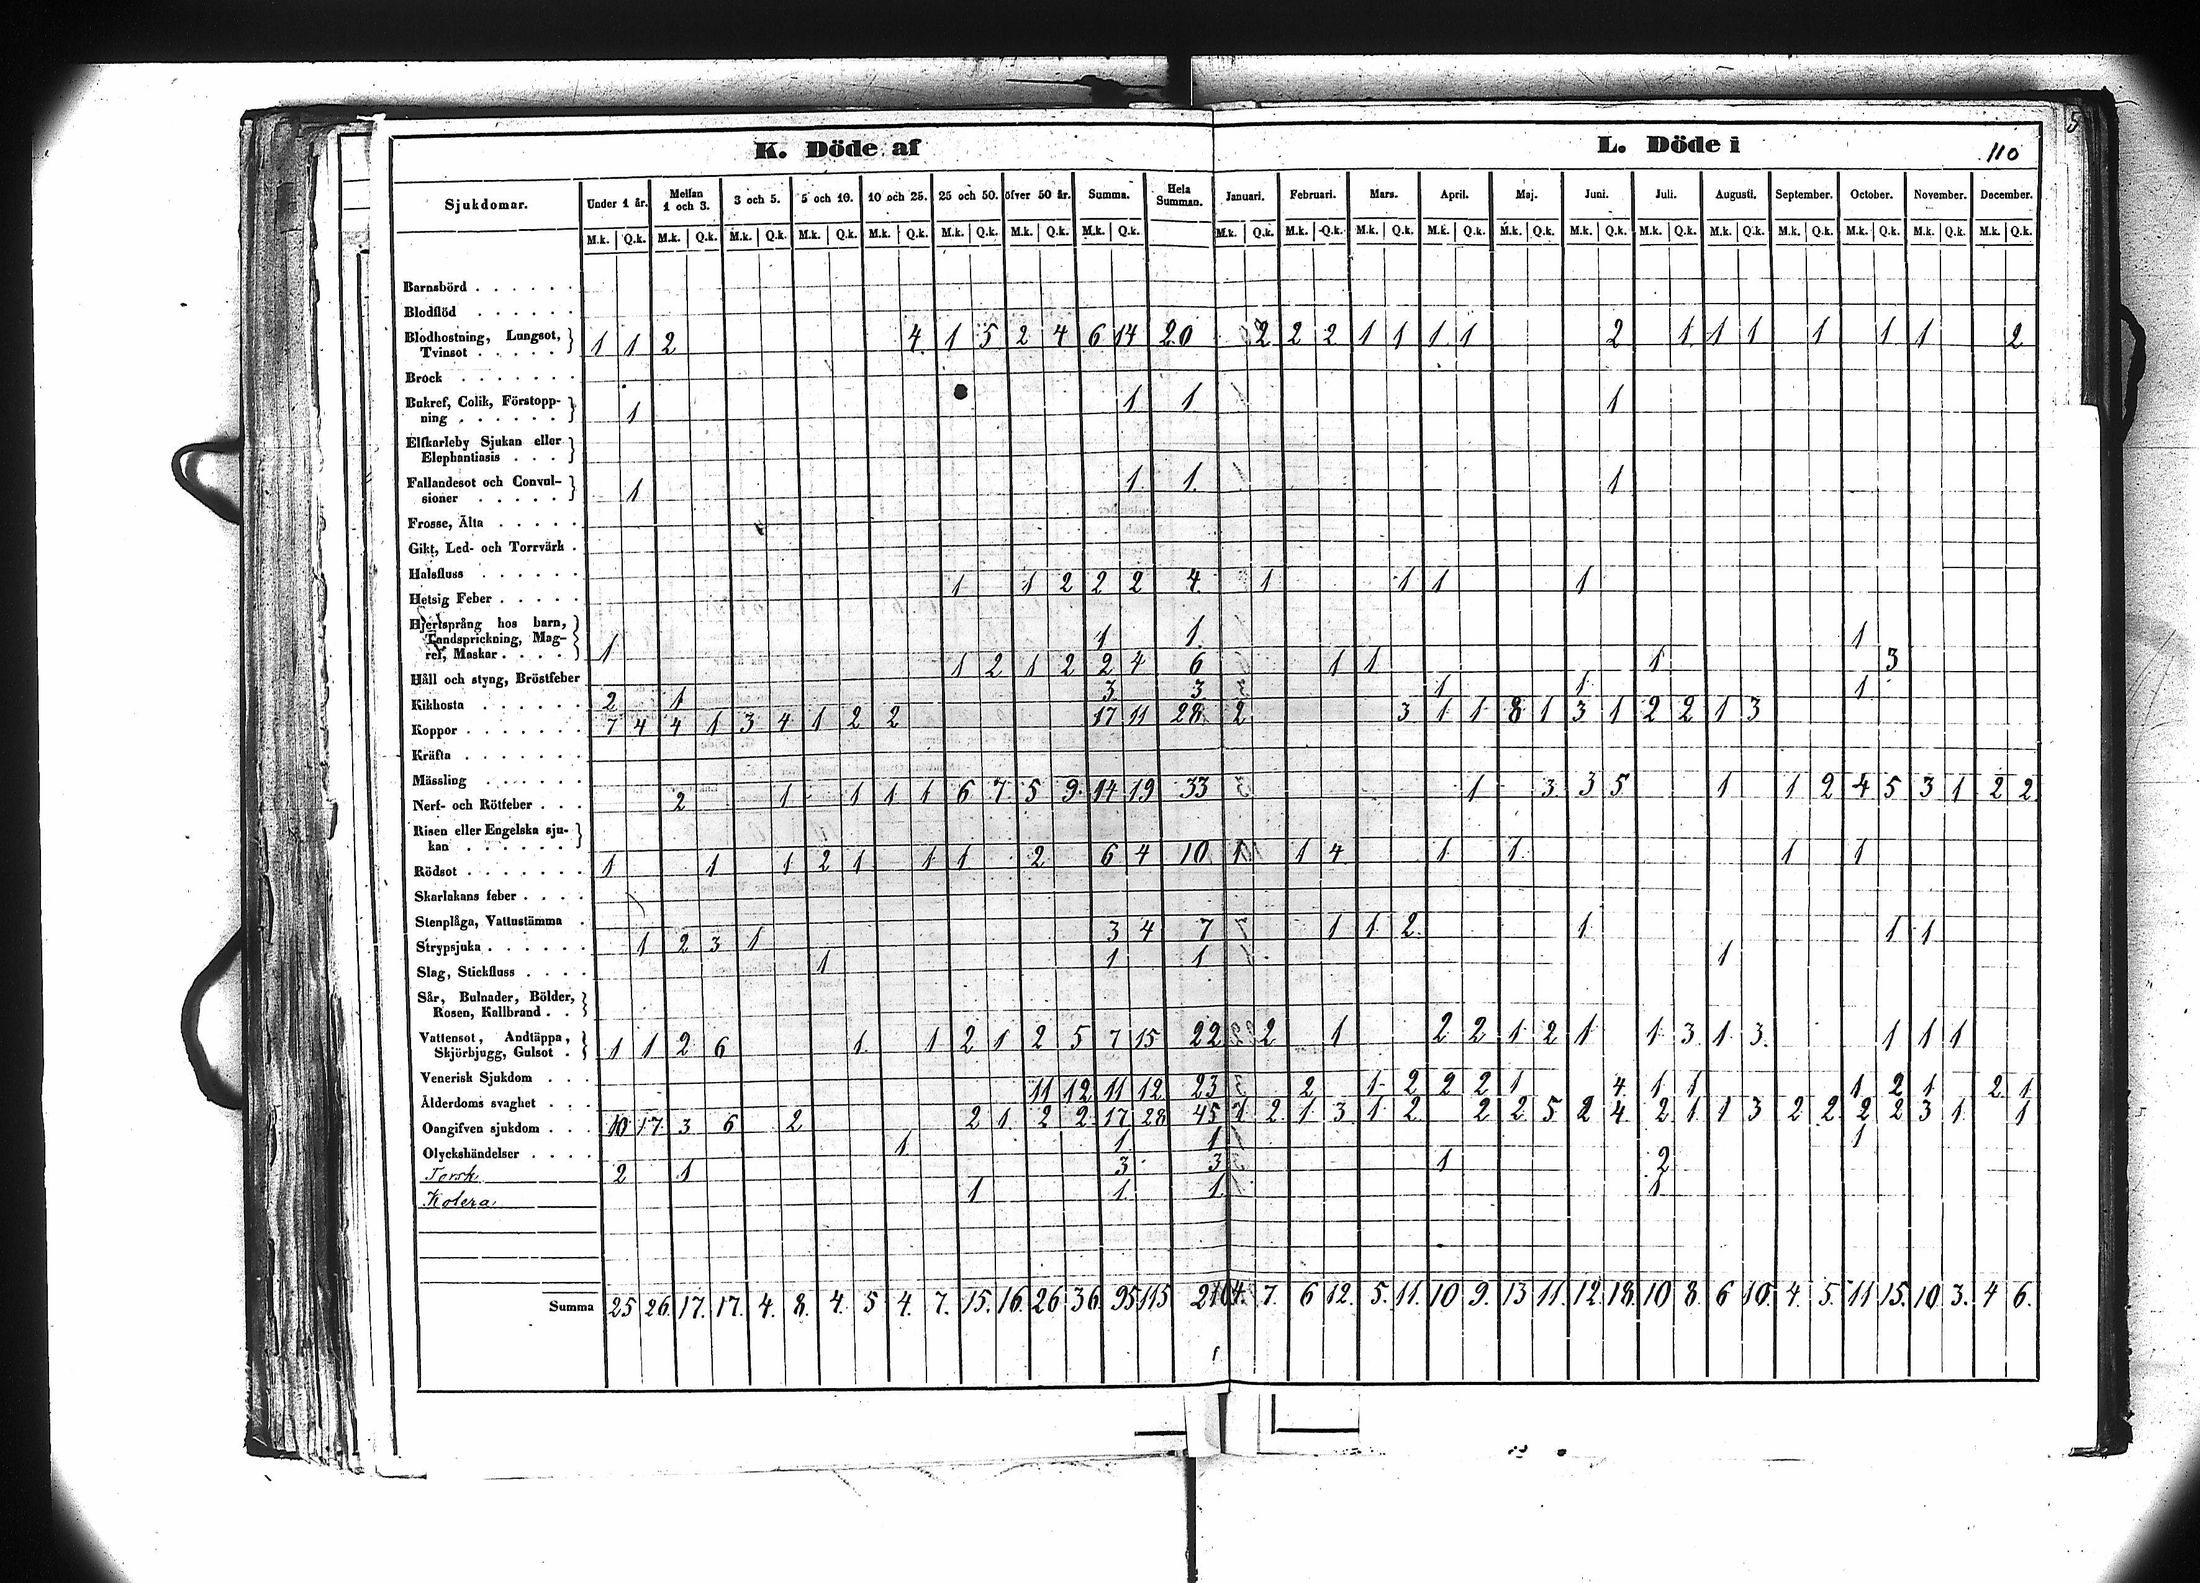 K. Döde af
L. Döde i
110
5
Sjukdomar. Under 1 år. Mellan 1 och 3. 3 och 5. 5 och 10. 10 och 25. 25 och 50. öfver 50 år. Summa. Hela Summan. Januari. Februari. Mars. April. Maj. Juni. Juli. Augusti. September. October. November. December.
M.k. Q.k. M.k. Q.k. M.k. Q.k. M.k. Q.k. M.k. Q.k. M.k. Q.k. M.k. Q.k. M.k. Q.k. M.k. Q.k. M.k. Q.k. M.k. Q.k. M.k. Q.k. M.k. Q.k. M.k. Q.k. M.k. Q.k. M.k. Q.k. M.k. Q.k. M.k. Q.k. M.k. Q.k. M.k. Q.k.
Barnsbörd
Blodflöd
Blodhostning, Lungsot,
Tvinsot 1 1 2 4. 1 5 2 4 6 14 20 2 2 2 1 1 1 1 2 1 1 1 1 1 1 2
Brock
Bukref, Colik, Förstopp-
ning 1 1 1 1
Elfkarleby Sjukan eller
Elephantiasis
Fallandesot och Convul-
sioner 1 1 1. 1
Frosse, Älta
Gikt, Led- och Torrvärk
Halsfluss
Hetsig Feber 1 1 2 2 2 4. 1 1 1 1
Hjertsprång hos barn,
Tandsprickning, Mag-
ref, Maskar 1 1 1. 1
Håll och styng, Bröstfeber 1 2 1 2 2 4 6 1 1 1 3
Kikhosta 2 1 3 3 1 1 1
Koppor 7 4 4 1 3 4 1 2 2 17 11 28 2 3 1 1 8 1 3 1 2 2 1 3
Kräfta
Mässling
Nerf- och Rötfeber 2 1 1 1 1 6 7 5 9. 14 19 33 1 3 3 5 1 1 2 4 5 3 1 2 2
Risen eller Engelska sju-
kan
Rödsot 1 1 1 2 1 1 1 2 6 4 10 1 1 4 1 1 1 1
Skarlakans feber
Stenplåga, Vattustämma
Strypsjuka 1 2 3 1 3 4 7 1 1 2 1 1 1
Slag, Stickfluss 1 1 1 1
Sår, Bulnader, Bölder,
Rosen, Kallbrand
Vattensot, Andtäppa,
Skjörbjugg, Gulsot 1 1 2 6 1. 1 2 1 2 5 7 15 22 2 1 2 2 1 2 1 1 3 1 3. 1 1 1
Venerisk Sjukdom
Ålderdoms svaghet 11 12 11 12 23 2 1 2 2 2 1 4 1 1 1 2 1 2 1
Oangifven sjukdom 10 17. 3 6 2 2 1 2 2. 17 28 45 1 2 1 3 1 2 2 2 5 2 4 2 1 1 3 2 2 2 2 3 1 1
Olyckshändelser 1 1. 1 1
Torsk 2 1 3 3 1 2
Kolera 1 1 1. 1
Summa 25 26. 17. 17. 4. 8. 4. 5 4. 7. 15. 16. 26 36. 95 115 210 4. 7. 6 12. 5. 11. 10 9. 13 11. 12. 18. 10 8. 6 10. 4. 5. 11 15. 10 3. 4 6.